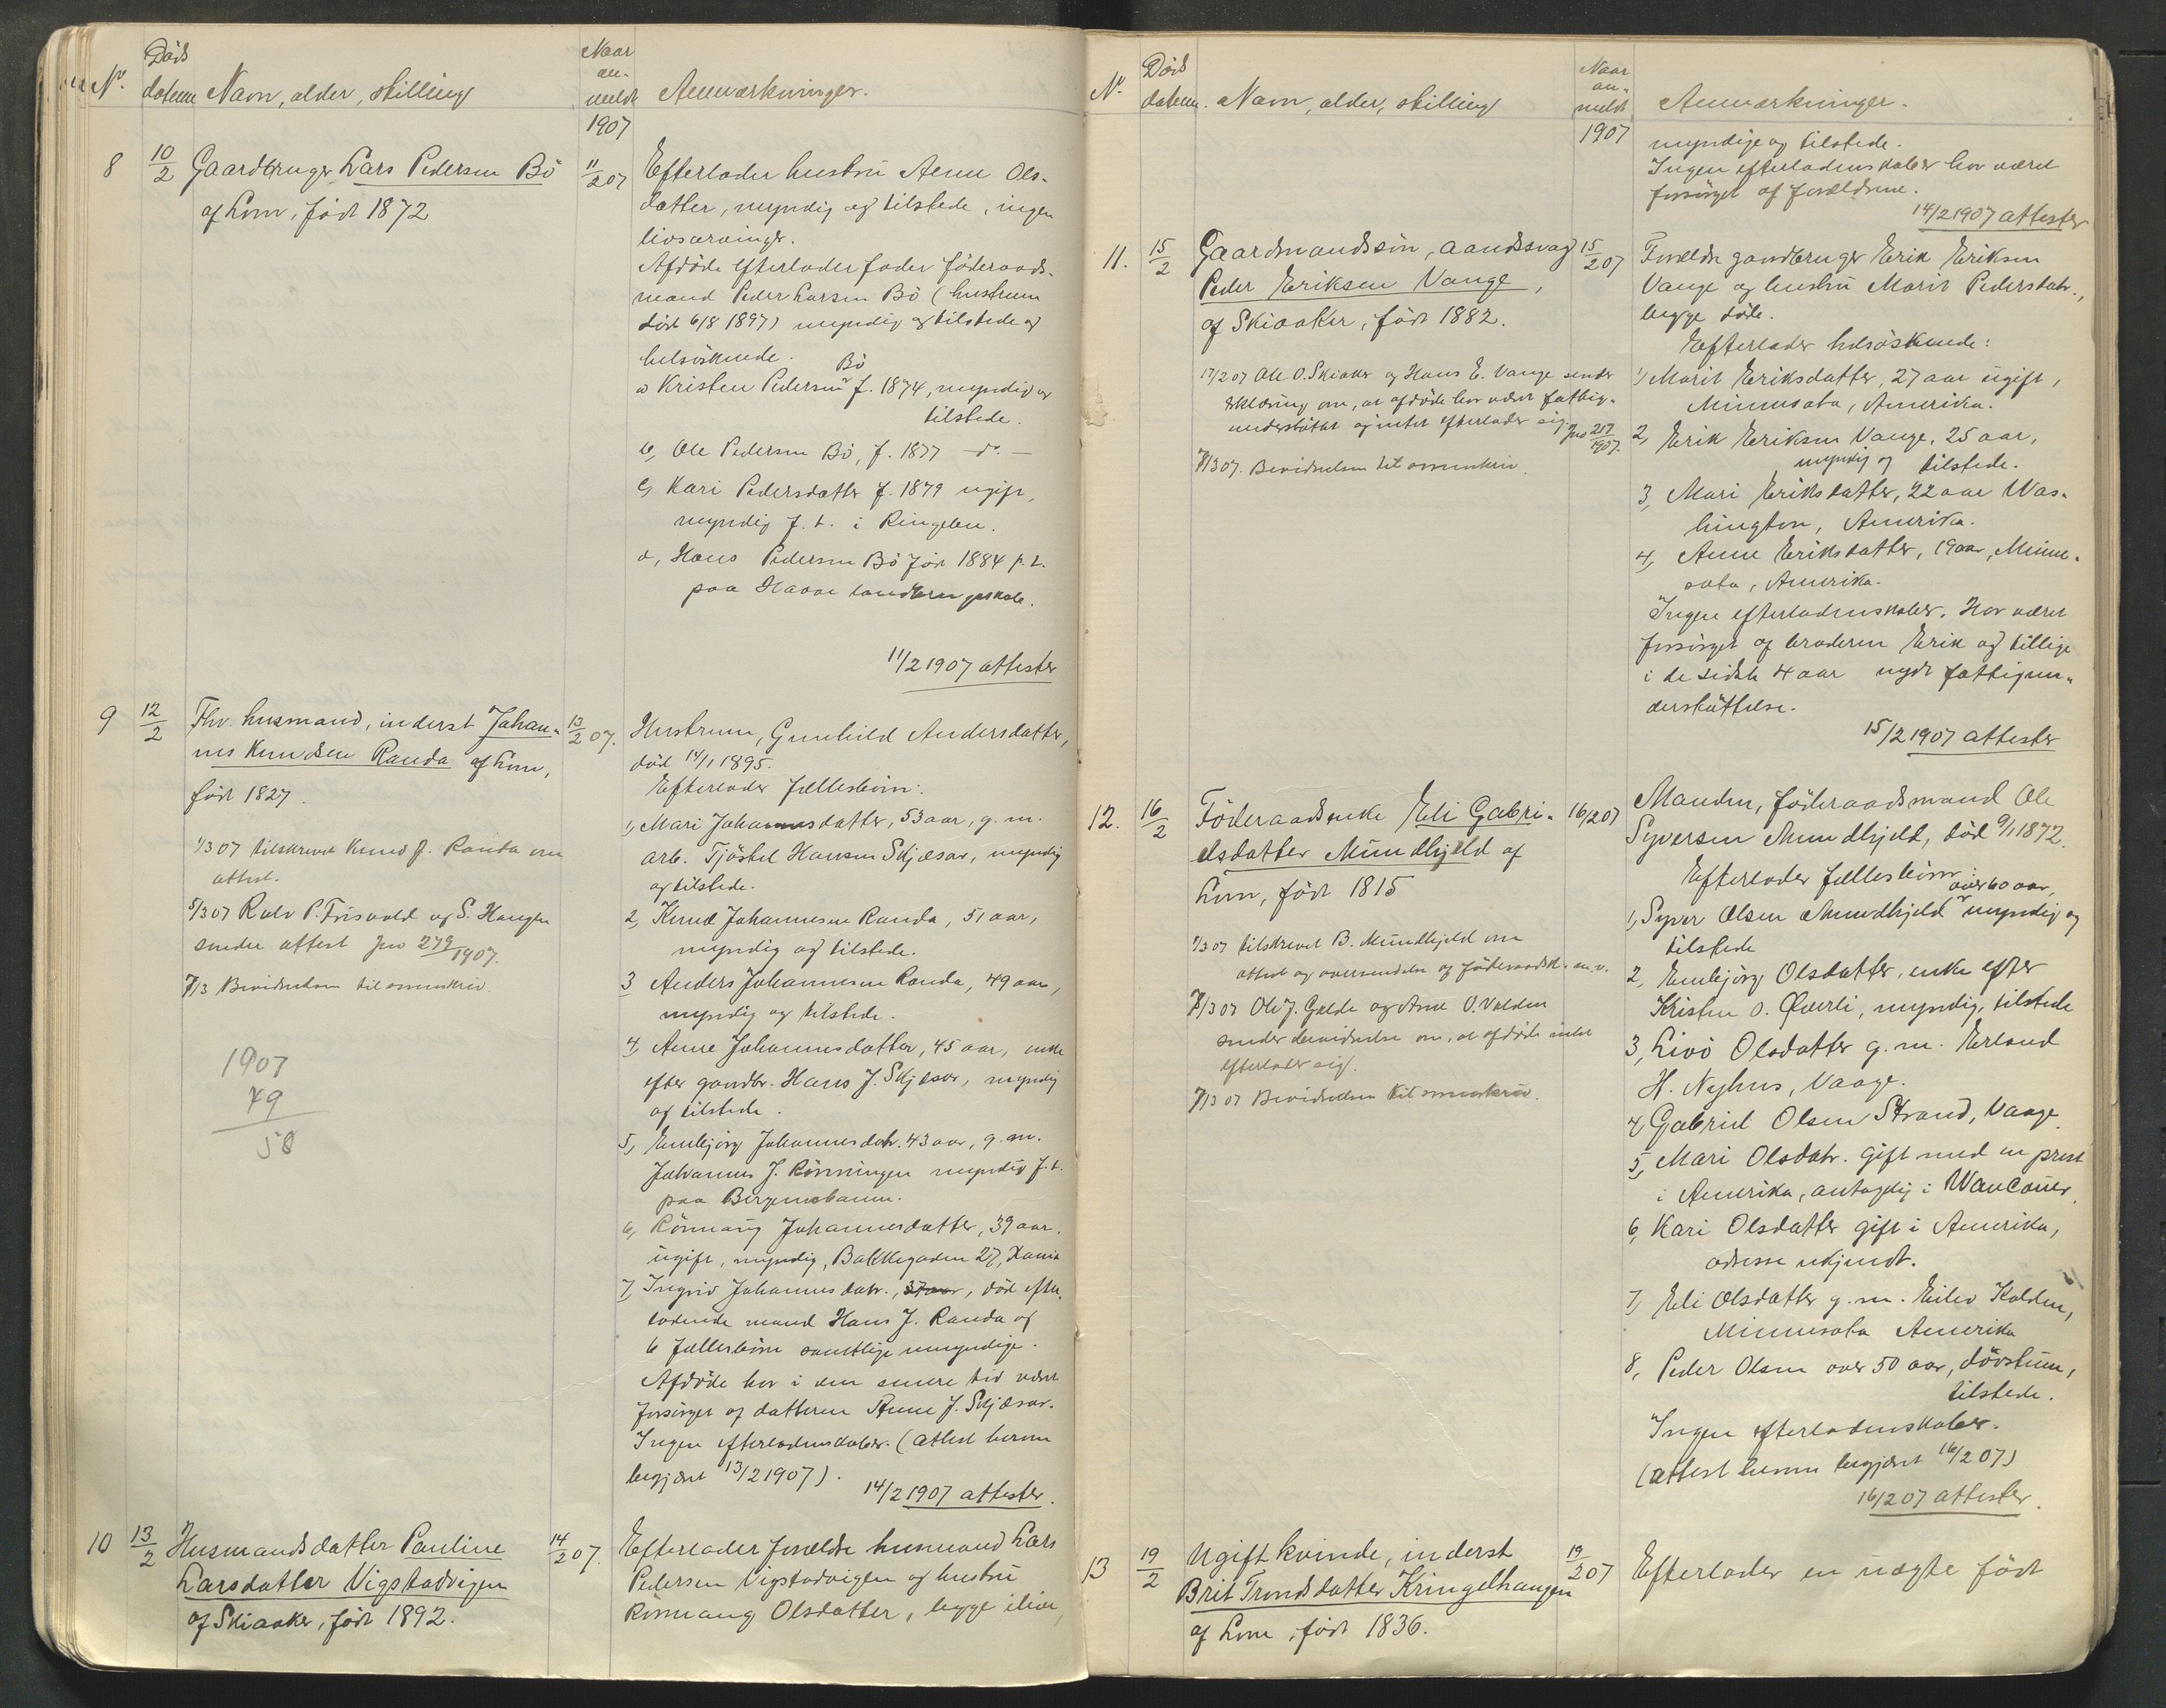 No.
Döds
datum
Navn, alder, stilling
Naar
an-
meldt
1907
Anmærkninger.
8
10/2
Gaardbruger Lars Pedersen Bö
af Lom, född 1872
11/2 07
Efterlader hustru Anne Ols-
datter, myndig og tilstede, ingen
livsarvinger.
Afdöde efterlader fader föderaads-
mand Peder Larsen Bö (hustruen
död 6/8 1897) myndig og tilstede og
helsöskende.
a Kristen Pedersen Bö f. 1874, myndig og
tilstede.
b, Ole Pedersen Bö, f. 1877 - do. -
c, Kari Pedersdatter f. 1879 ugift,
myndig f. t. i Ringebu.
d, Hans Pedersen Bö född 1884 p. t.
paa landbrugsskole.
11/2 1907 attester
9
12/2
Fhv. husmand, inderst Johan-
nes Knudsen Randa af Lom,
född 1827.
13/2 07.
1/3 07 tilskrevet Knud J. Randa om
attest.
5/3 07 Rolv P. Frisvold og S. Haugen
sender attest jno 279/1907.
7/3 Bevidnelsen til sorenskriv.
1907
79
58
Hustruen, Gunhild Andersdatter,
död 14/1 1895.
Efterlader fællesbörn:
1, Mari Johannesdatter, 53 aar, g. m.
arb. Tjöstel Hansen Skjæsar, myndig
og tilstede.
2, Knud Johannesen Randa, 51 aar,
myndig og tilstede.
3 Anders Johannesen Randa, 49 aar,
myndig og tilstede.
4, Anne Johannesdatter, 45 aar, enke
efter gaardbr. Hans J. Skjæsar, myndig
og tilstede.
5, Embjörg Johannesdatr. 43 aar, g. m.
Johannes J. Rönningen myndig f. t.
paa Bergensbanen.
6, Rönnaug Johannesdatter, 39 aar.
ugift, myndig, Bakkegaden 27, Xania
7, Ingrid Johannesdatr., 37 aar, död efter-
ladende mand Hans J. Randa og
6 fællesbörn samtlige umyndige.
Afdöde har i den senere tid været
forsörget af datteren Anne J. Skjæsar.
Ingen efterladenskaber. (attest herom
begjæret 13/2 1907).
14/2 1907 attester.
10
13/2
Husmandsdatter Pauline
Larsdatter Vigstadvigen
af Skiaaker, född 1892.
14/2 07.
Efterlader forældre husmand Lars
Pedersen Vigstadvigen og hustru
Rönnaug Olsdatter, begge ilive,
No.
Döds
datum.
Navn, alder, stilling
Naar
an-
meldt
1907
Anmærkninger.
myndige og tilstede.
Ingen efterladenskaber har været
forsörget af forældrene.
14/2 1907 attester
11.
15/2
Gaardmandssön, aandssvag
Peder Eriksen Vange,
af Skiaaker, född 1882.
15/2 07
17/2 07 Ole O. Skiaker og Hans E. Vange sender
erklæring om, at afdöde har været fattig-
understöttet og intet efterlader sig. jno 217/1907.
7/3 07. Bevidnelsen til sorenskriv.
Forældre gaardbruger Erik Eriksen
Vange og hustru Marit Pedersdatr.,
begge döde.
Efterlader helsöskende:
1, Marit Eriksdatter, 27 aar ugift,
Minnesota, Amerika.
2, Erik Eriksen Vange, 25 aar,
myndig og tilstede.
3, Mari Eriksdatter, 22 aar Was-
hington, Amerika.
4, Anne Eriksdatter, 19 aar, Minne-
sota, Amerika.
Ingen efterladenskaber. Har været
forsörget af broderen Erik og tillige
i de sidste 4 aar nydt fattigun-
derstöttelse.
15/2 1907 attester
12.
16/2
Föderaadsenke Eli Gabri-
elsdatter Mundhjeld af
Lom, född 1815
16/2 07
1/3 07 tilskrevet B. Mundhjeld om
attest og oversendelse af föderaadsk. m.v.
7/3 07 Ole J. Galde og Arne O. Volden
sender bevidnelse om, at afdöde intet
efterlader sig.
7/3 07 Bevidnelsen til sorenskriv.
Manden, föderaadsmand Ole
Syversen Mundhjeld, död 9/1 1872.
Efterlader fællesbörn:
1, Syver Olsen Mundhjeld over 60 aar, myndig og
tilstede
2, Embjörg Olsdatter, enke efter
Kristen O. Qverli, myndig, tilstede
3, Livö Olsdatter g. m. Erland
H. Nyhus, Vaage.
4, Gabriel Olsen Strand, Vaage.
5, Mari Olsdatr. gift med en prest
i Amerika, antagelig i WanCouver.
6, Kari Olsdatter gift i Amerika,
adresse ukjendt.
7, Eli Olsdatter g. m. Eilev Kolden,
Minnesota Amerika
8, Peder Olsen over 50 aar, dövstum,
tilstede.
Ingen efterladenskaber.
(attest herom begjæret 16/2 07)
16/2 07 attester.
13
19/2
Ugift kvinde, inderst
Brit Trondsdatter Kringelhaugen
af Lom, född 1836.
19/2 07
Efterlader en uægte född